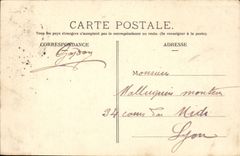 CARTE POSTALE.
Tous les pays étrangers n'acceptent pas la correspondance au recto. (Se renseigner à la Poste).
CORRESPONDANCE
ADRESSE
Monsieur
monteur
34 cours du Midi
Lyon